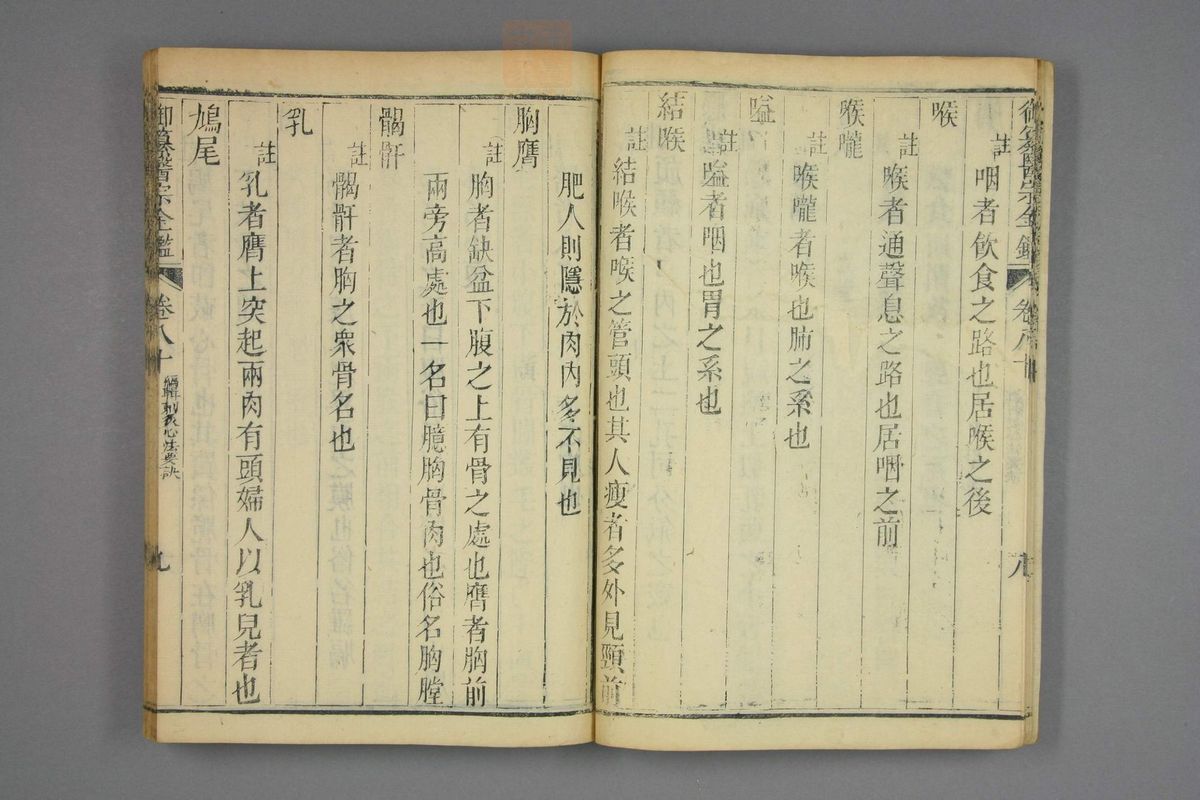 御纂醫宗全鑑 卷八十 八
註 咽者飲食之路也居喉之後
喉
註 喉者通聲息之路也居咽之前
喉嚨
註 喉嚨者喉也肺之系也
嗌
註 嗌者咽也胃之系也
結喉
註 結喉者喉之管頭也其人瘦者多外見頸前
肥人則隱於肉內多不見也
胸膺
註 胸者缺盆下腹之上有骨之處也膺者胸前
兩旁高處也一名曰臆胸骨肉也俗名胸膛
𩩲骬
註 𩩲骬者胸之衆骨名也
乳
註 乳者膺上突起兩肉有頭婦人以乳兒者也
鳩尾
御纂醫宗金鑑 卷八十 編輯刺灸心法要訣 九